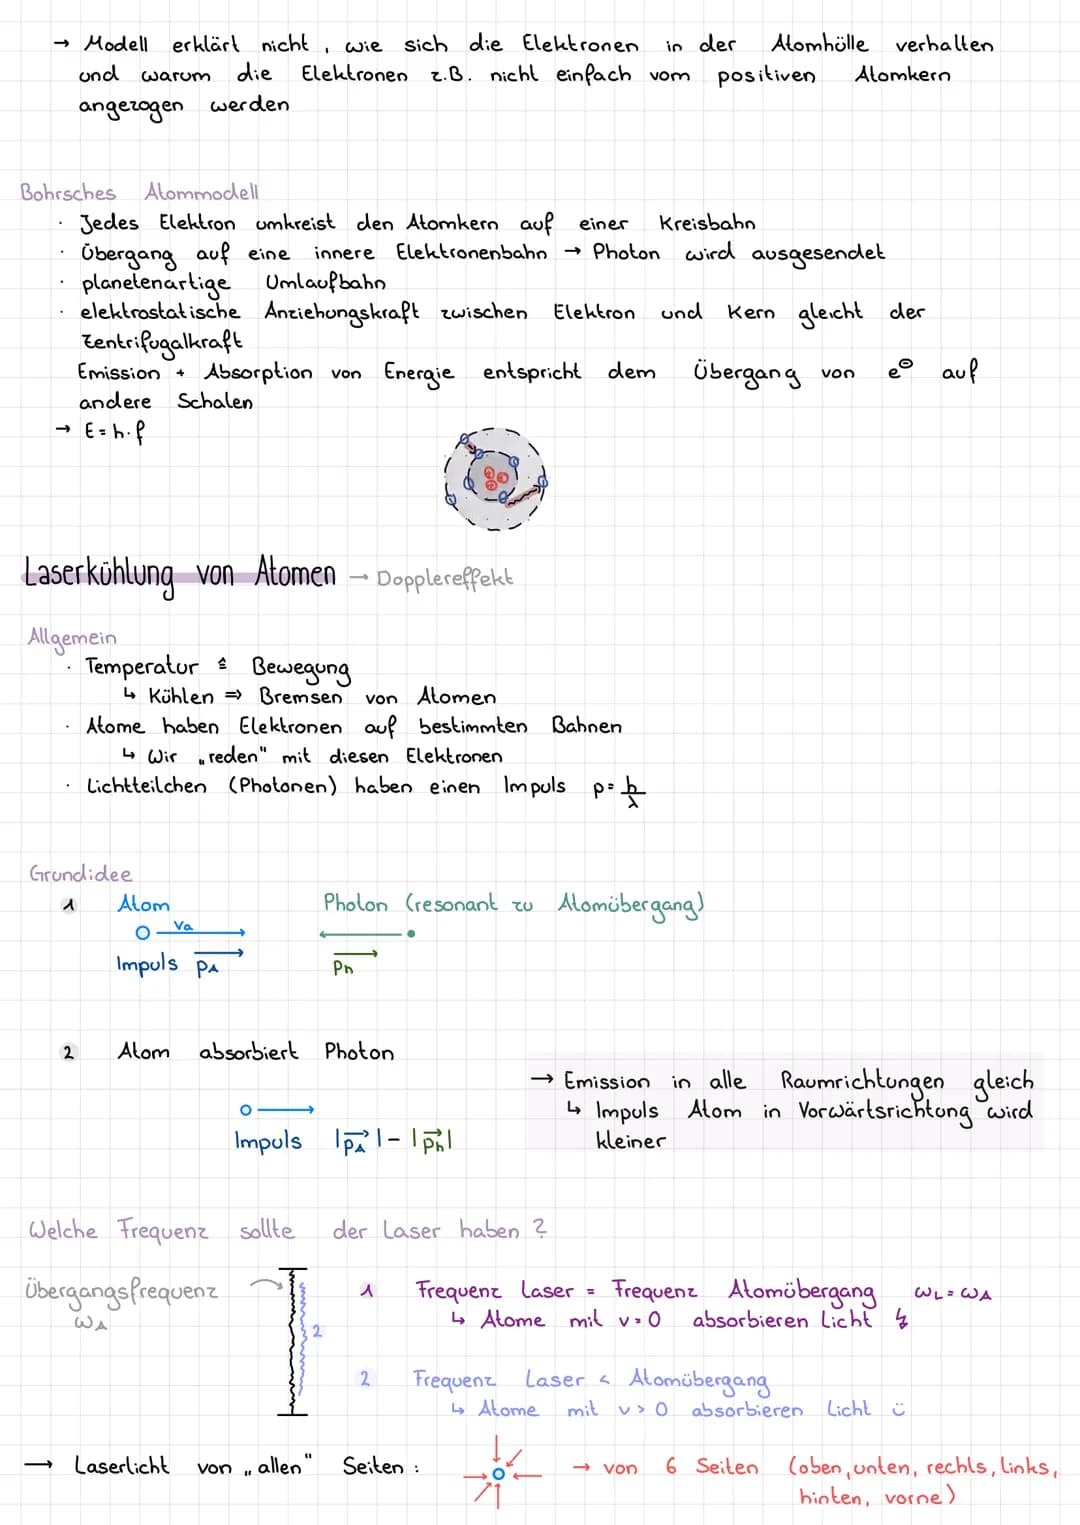 → Modell erklärt nicht, wie sich die Elektronen in der Atomhülle verhalten
und warum die Elektronen z.B. nicht einfach vom positiven Atomkern
angezogen werden
Bohrsches Atommodell
· Jedes Elektron umkreist den Atomkern auf einer Kreisbahn
· Übergang auf eine innere Elektronenbahn → Photon wird ausgesendet
· planetenartige Umlaufbahn
· elektrostatische Anziehungskraft zwischen Elektron und Kern gleicht der
Zentrifugalkraft
Emission + Absorption von Energie entspricht dem Übergang von e⊖ auf
andere Schalen
→ E = h·f
Laserkühlung von Atomen → Dopplereffekt
Allgemein
· Temperatur ≙ Bewegung
↳ Kühlen ⇒ Bremsen von Atomen
· Atome haben Elektronen auf bestimmten Bahnen
↳ Wir „reden" mit diesen Elektronen
· Lichtteilchen (Photonen) haben einen Impuls p = h/λ
Grundidee
1 Atom Photon (resonant zu Atomübergang)
Va
Impuls pA ph
2 Atom absorbiert Photon
→ Emission in alle Raumrichtungen gleich
↳ Impuls Atom in Vorwärtsrichtung wird
kleiner
Impuls |pA| - |ph|
Welche Frequenz sollte der Laser haben?
Übergangsfrequenz
ωA
2
1 Frequenz Laser = Frequenz Atomübergang ωL = ωA
↳ Atome mit v = 0 absorbieren Licht ↯
2 Frequenz Laser < Atomübergang
↳ Atome mit v > 0 absorbieren Licht ü
→ Laserlicht von „allen" Seiten: → von 6 Seiten (oben, unten, rechts, links,
hinten, vorne)